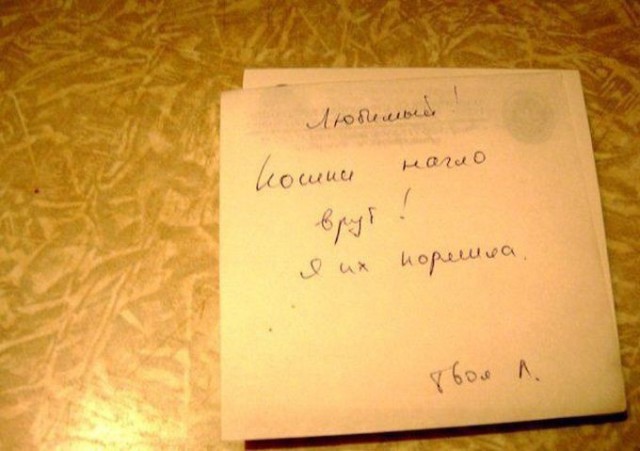 Любимый!
Кошки нагло
врут!
Я их кормила.
Твоя Л.